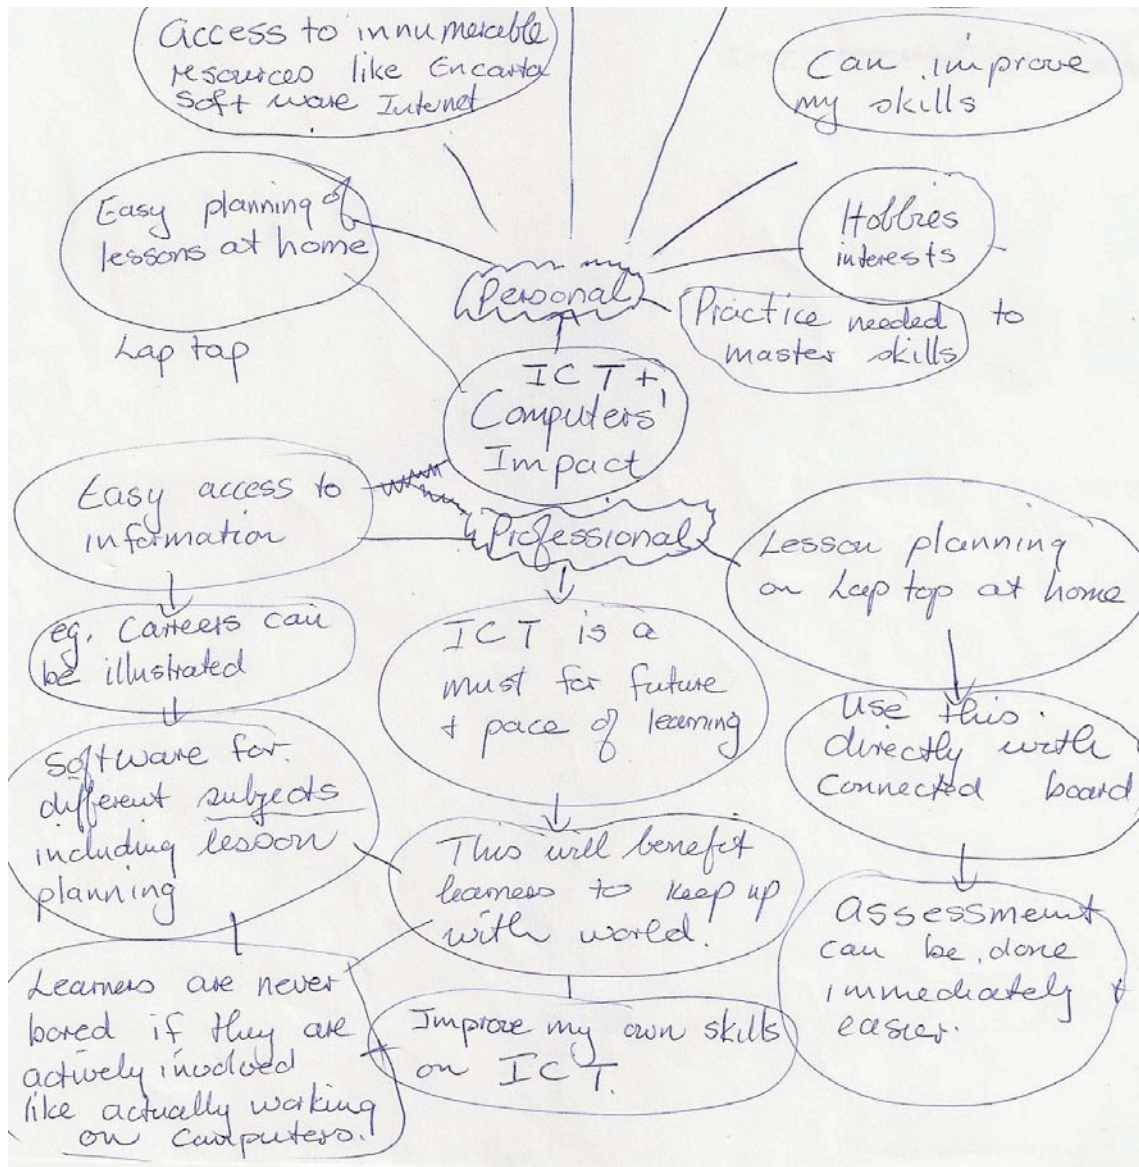 Access to innumerable
resources like Encarta
Soft ware Internet
Can improve
my skills
Easy planning of
lessons at home
Lap tap
Hobbies
interests
Personal
Practice needed to
master skills
ICT +
Computers'
Impact
Easy access to
information
Professional
Lesson planning
on Lap top at home
eg. Careers can
be illustrated
ICT is a
must for future
+ pace of learning
Use this
directly with
Connected board
Software for
different subjects
including lesson
planning
This will benefit
learners to keep up
with world.
Assessment
can be done
immediately +
easier.
Learners are never
bored if they are
actively involved
like actually working
on Computers.
Improve my own skills
on ICT.